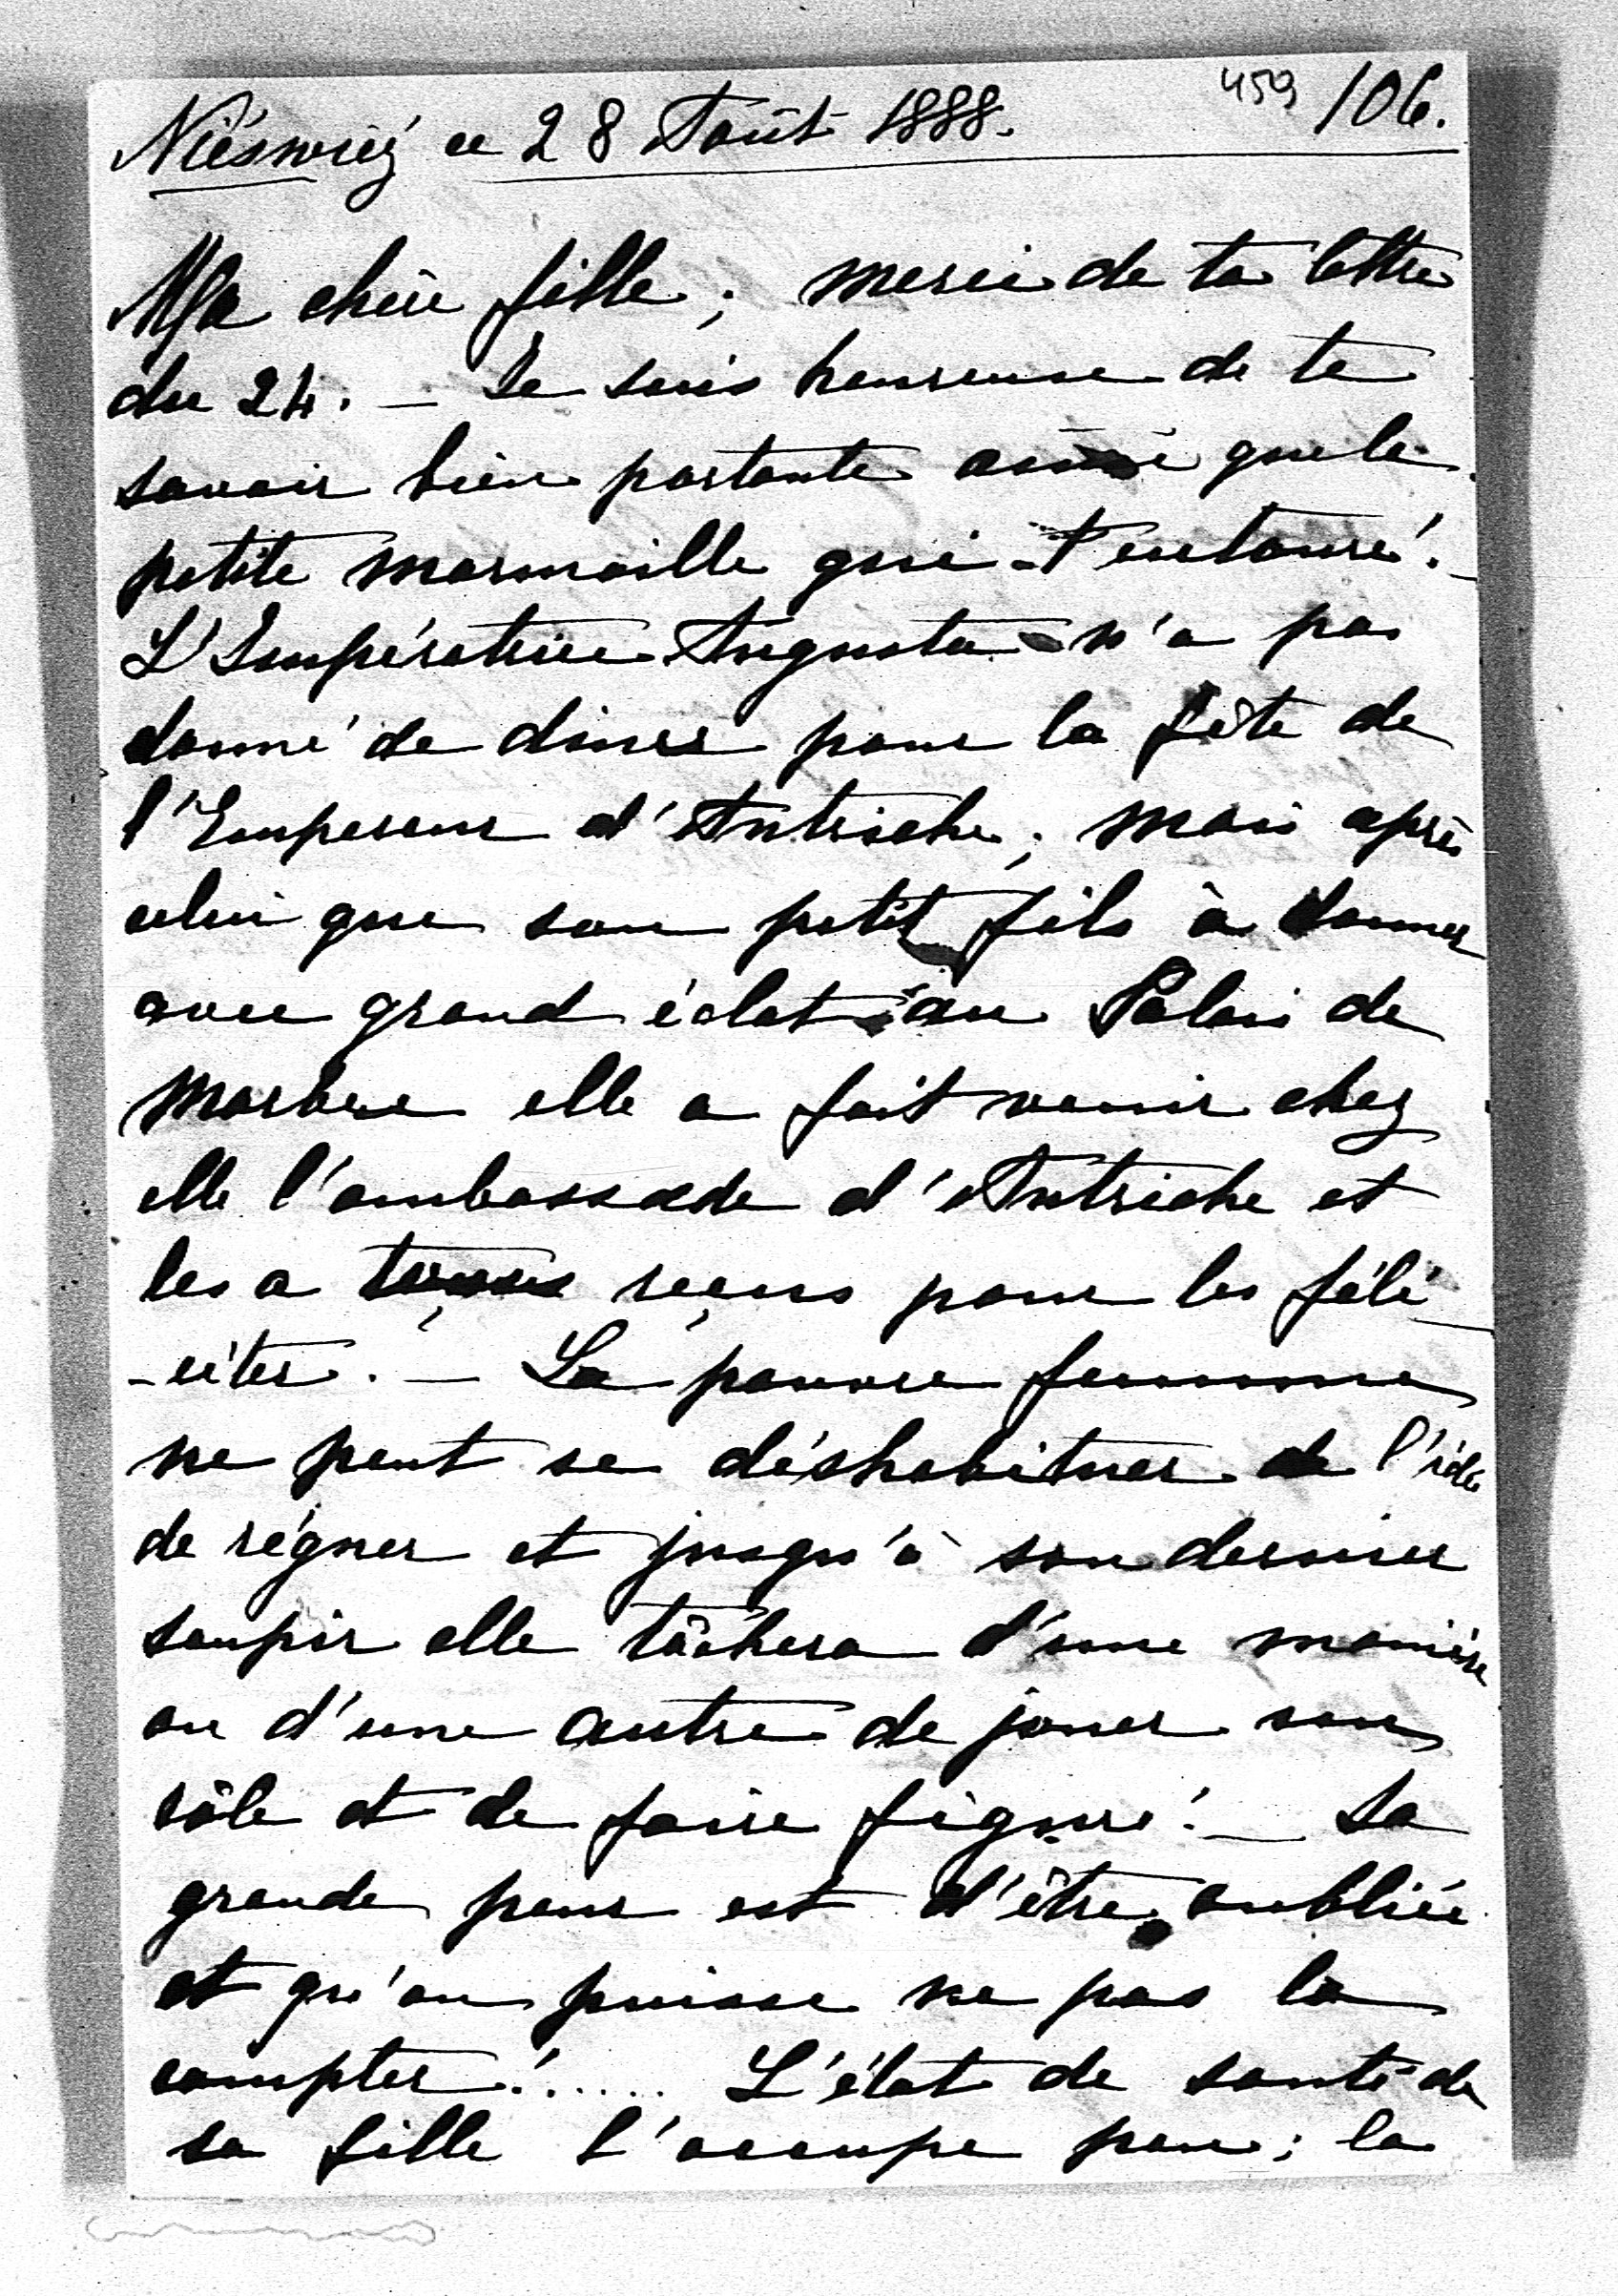 Niéswiéz ce 28 Août 1888. 459 106.
Ma chère fille; merci de ta lettre
du 24. — Je suis heureuse de te
savoir bien portante ainsi que la
petite marmaille qui t'entoure! —
L'Impératrice Augusta n'a pas
donné de diner pour la fête de
l'Empereur d'Autriche; mais après
celui que son petit fils à donner
avec grand éclat au Palais de
Marbre elle a fait venir chez
elle l'ambassade d'Autriche et
les a reçus pour les féli
-citer. — La pauvre femme
ne peut se déshabituer de l'idée
de régner et jusqu'à son dernier
soupir elle tâchera d'une manière
ou d'une autre de jouer son
rôle et de faire figure! — Sa
grande peur est d'être oubliée
et qu'on puisse ne pas la
compter!...... L'état de santé de
sa fille l'occupe peu; la